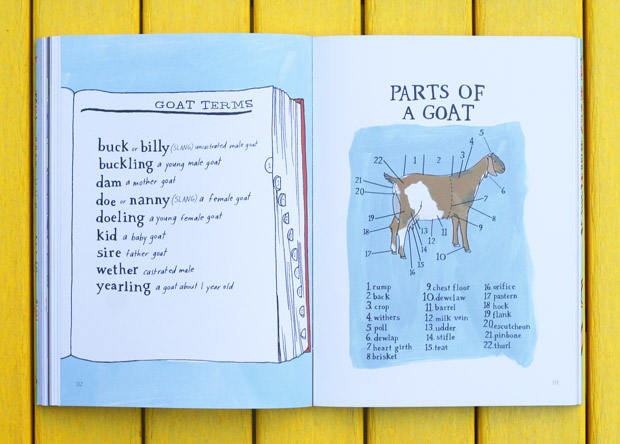 GOAT TERMS
buck or billy (SLANG) uncastrated male goat
buckling a young male goat
dam a mother goat
doe or nanny (SLANG) a female goat
doeling a young female goat
kid a baby goat
sire father goat
wether castrated male
yearling a goat about 1 year old
112
PARTS OF
A GOAT
5
4
22 1 2 3
21
20
6
7
19 8
18 13 11 9
12
17 14 10
15
16
1. rump
2. back
3. crop
4. withers
5. poll
6. dewlap
7 heart girth
8 brisket
9. chest floor
10. dewclaw
11. barrel
12. milk vein
13. udder
14. stifle
15. teat
16 orifice
17 pastern
18 hock
19 flank
20 escutcheon
21 pinbone
22. thurl